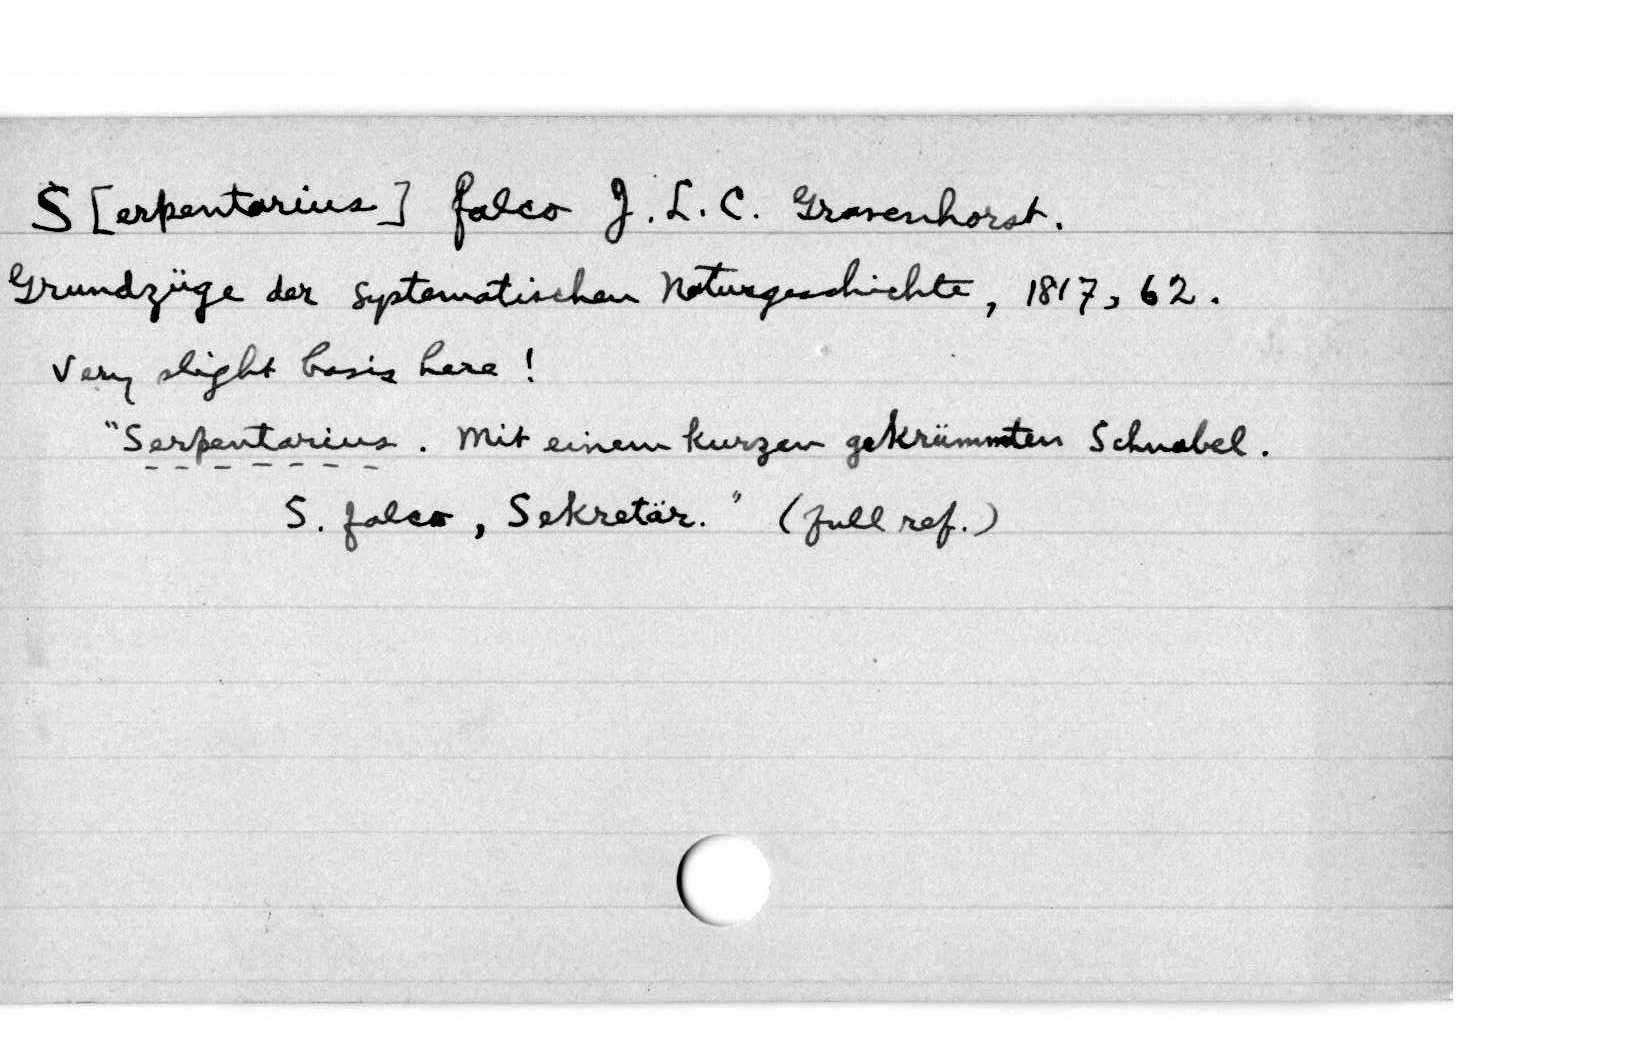 S [erpentarius] falco J. L. C. Gravenhorst.
Grundzüge der systematischen Naturgeschichte, 1817, 62.
Very slight basis here!
"Serpentarius. Mit einem kurzen gekrümmten Schnabel.
S. falco, Sekretär." (full ref.)